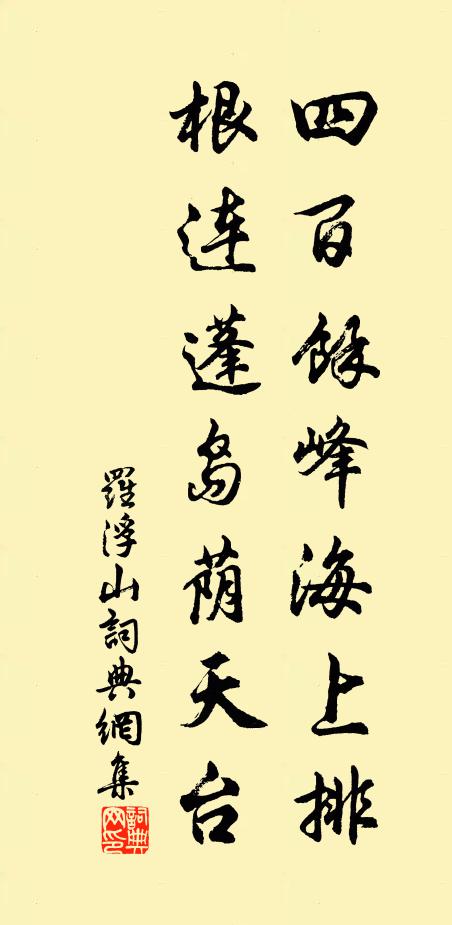 四百餘峰海上排
根连蓬岛荫天台
羅浮山詞典網集
詞典网印